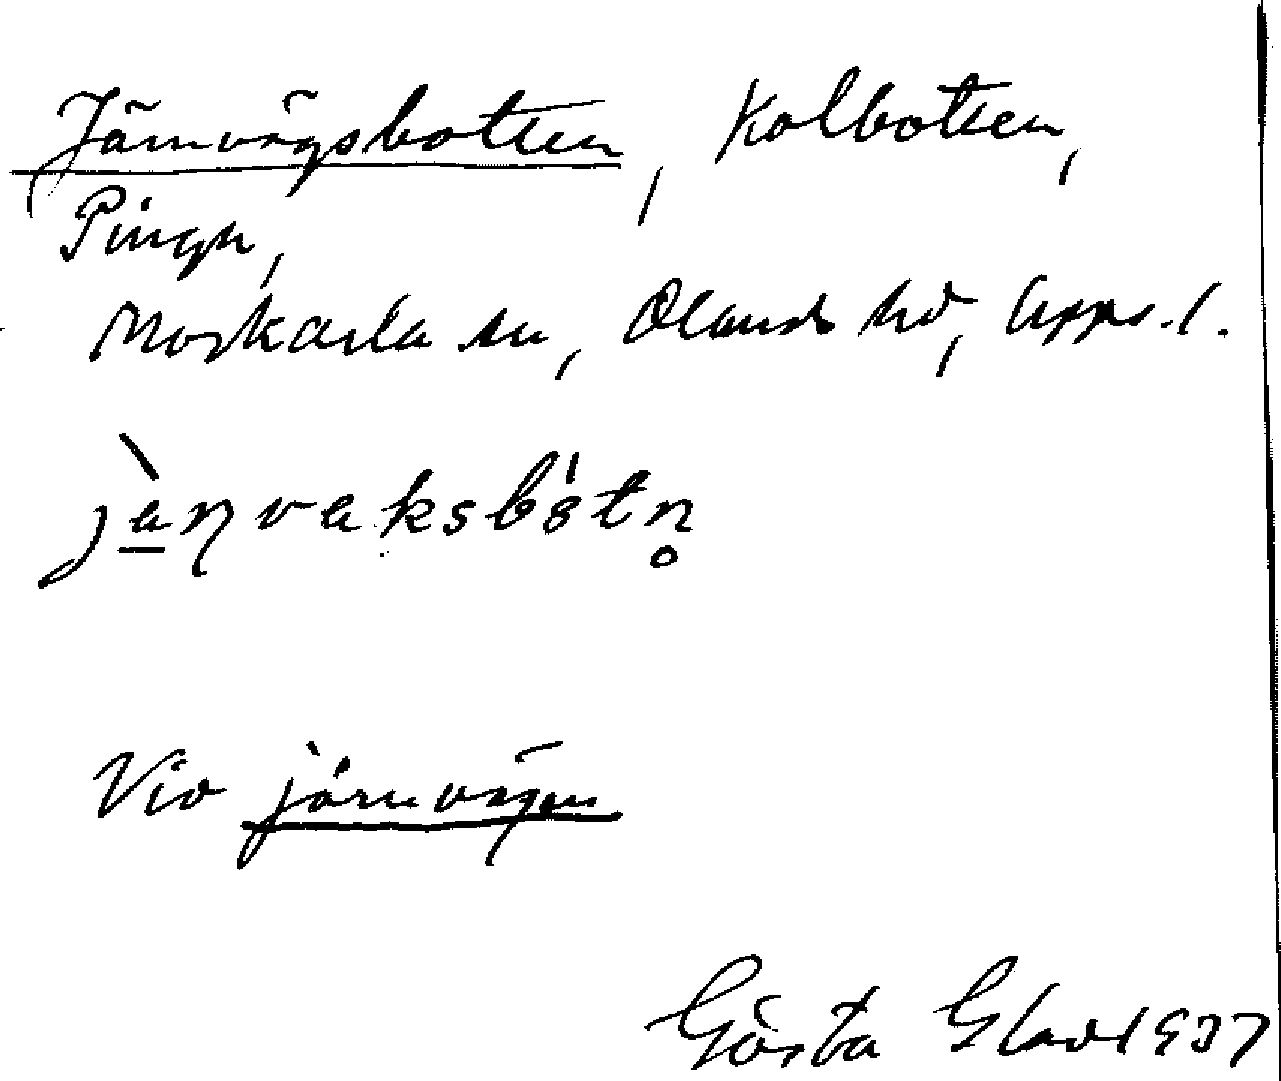 Järnvägsbotten, Kolbotten,
Pingh,
Morkarla sn, Olands hd, Upps. l.
jànvaksbótn̥
Vid järnvägen
Gösta Glad 1937